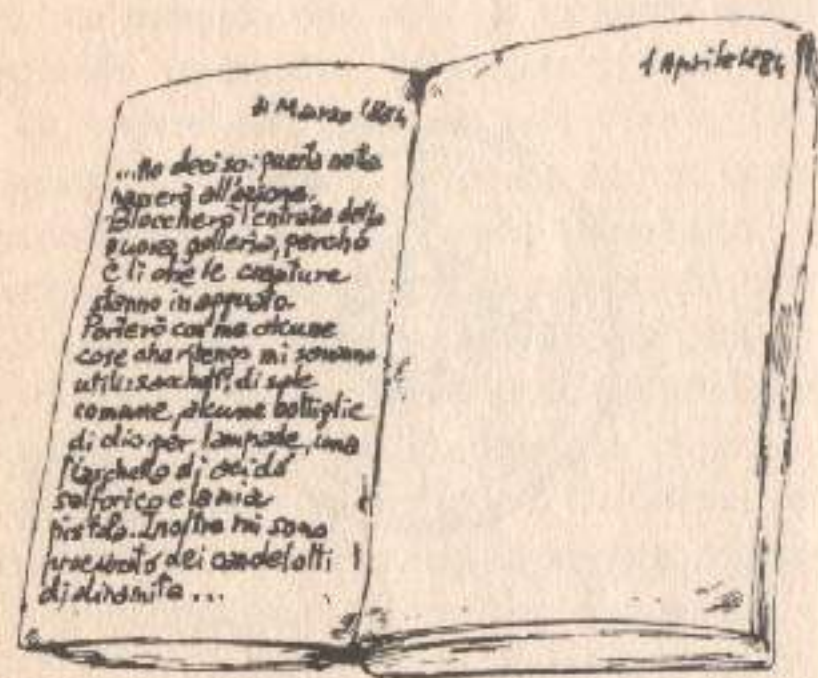 31 Marzo 1884
...Ho deciso: questa notte
passerò all'azione.
Bloccherò l'entrata della
nuova galleria, perché
è lì che le creature
stanno in agguato.
Porterò con me alcune
cose che ritengo mi saranno
utili: sacchetti di sale
comune, alcune bottiglie
di olio per lampade, una
fiaschetta di acido
solforico e la mia
pistola. Inoltre mi sono
procurato dei candelotti
di dinamite...
1 Aprile 1884